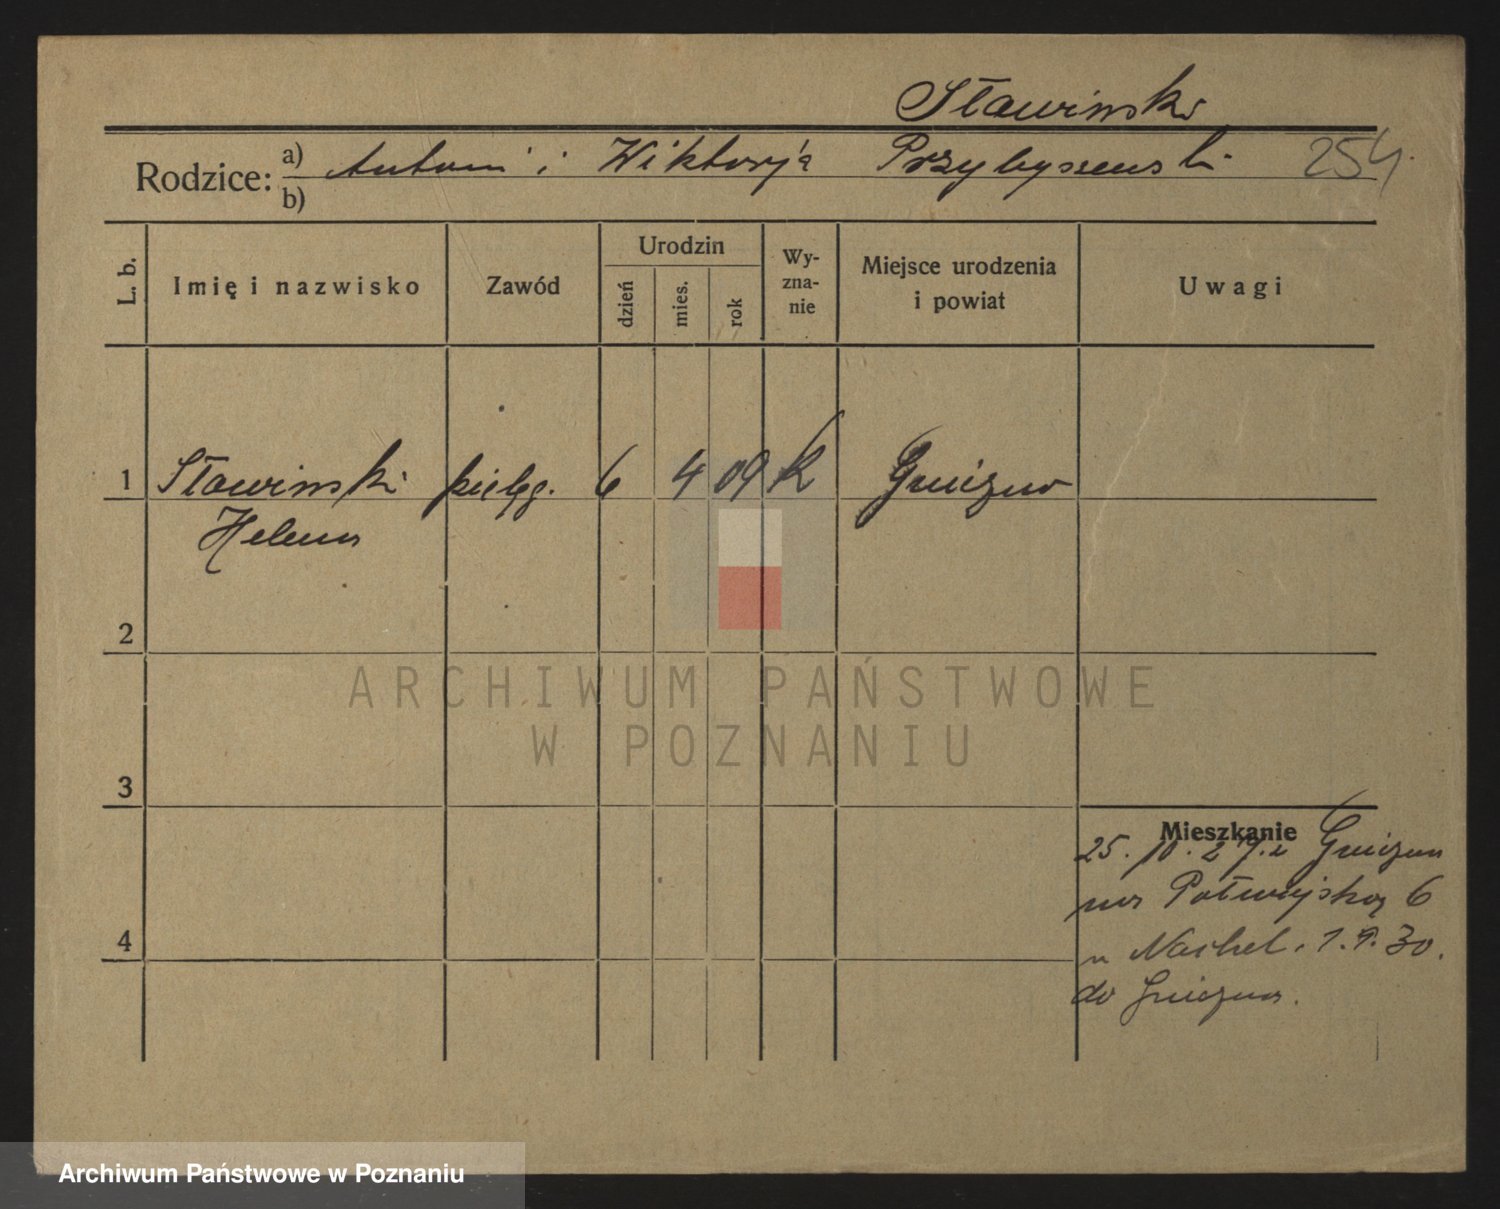 Sławinski
Rodzice: a) Antoni i Wiktorja Przybyszewski 254
b)
L. b. Imię i nazwisko Zawód Urodzin dzień mies. rok Wy-zna-nie Miejsce urodzenia i powiat Uwagi
1 Sławinski pielęg. 6 4 09 K Gniezno
Helena
2
ARCHIWUM PAŃSTWOWE
W POZNANIU
3
Mieszkanie
25. 10. 27. z Gniezna
na 6
Nachel. 1. 9. 30.
4
do Gniezna.
Archiwum Państwowe w Poznaniu